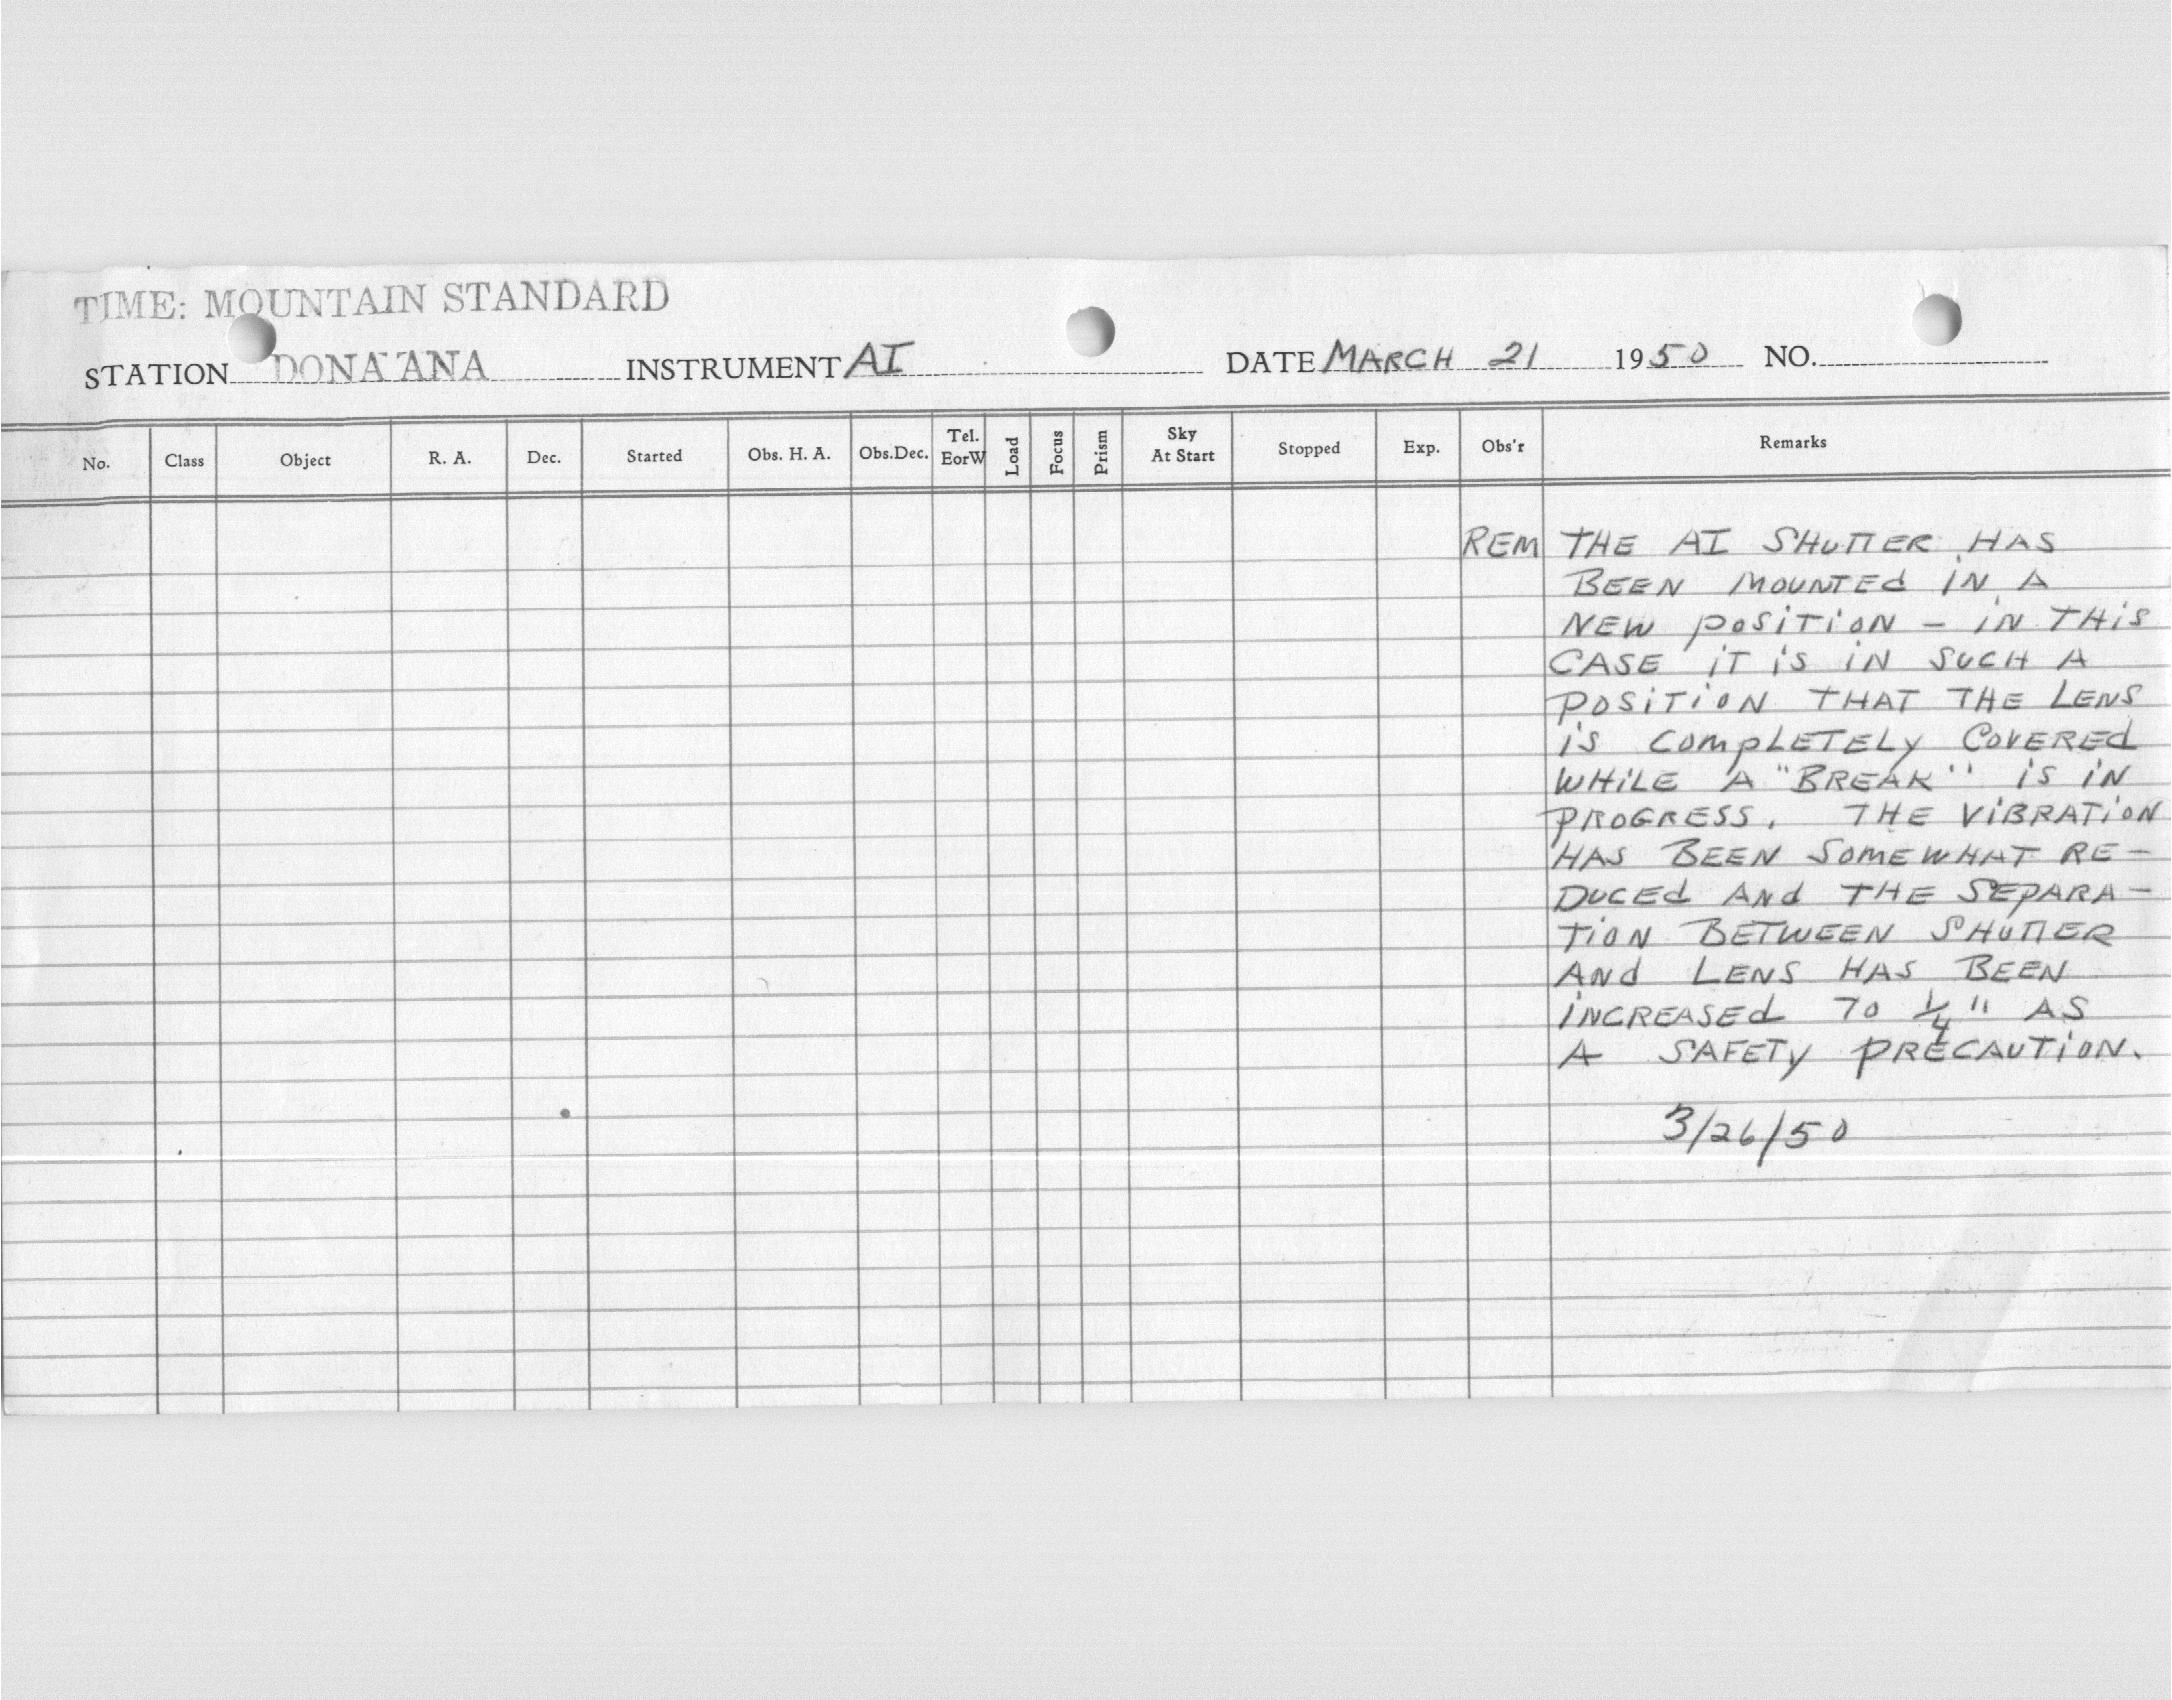 TIME: MOUNTAIN STANDARD
STATION DONA ANA INSTRUMENT AI DATE MARCH 21 1950 NO.
No. Class Object R. A. Dec. Started Obs. H. A. Obs.Dec. Tel. EorW Load Focus Prism Sky At Start Stopped Exp. Obs'r Remarks
REM THE AI SHUTTER HAS
BEEN MOUNTED IN A
NEW POSITION - IN THIS
CASE IT IS IN SUCH A
POSITION THAT THE LENS
IS COMPLETELY COVERED
WHILE A "BREAK" IS IN
PROGRESS. THE VIBRATION
HAS BEEN SOMEWHAT RE-
DUCED AND THE SEPARA-
TION BETWEEN SHUTTER
AND LENS HAS BEEN
INCREASED TO 1/4" AS
A SAFETY PRECAUTION.
3/26/50